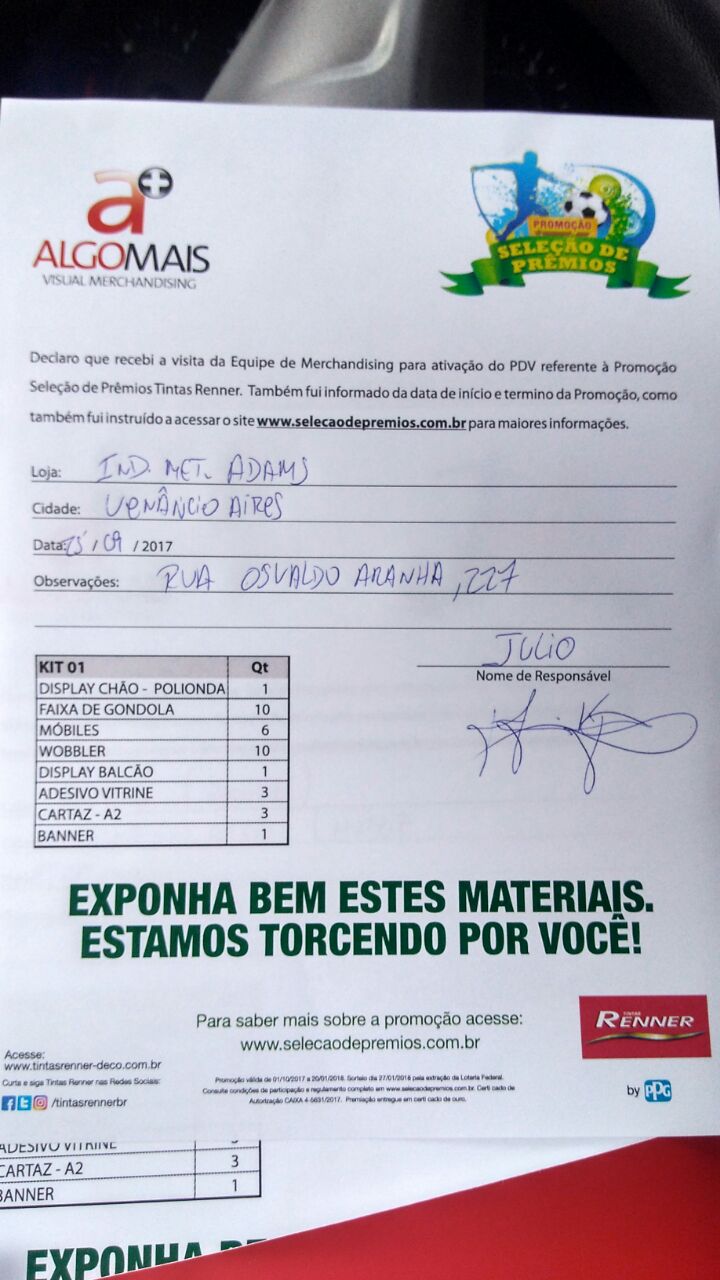 a+
ALGOMAIS
VISUAL MERCHANDISING
PROMOÇÃO
SELEÇÃO DE
PRÊMIOS
Declaro que recebi a visita da Equipe de Merchandising para ativação do PDV referente à Promoção
Seleção de Prêmios Tintas Renner. Também fui informado da data de início e termino da Promoção, como
também fui instruído a acessar o site www.selecaodepremios.com.br para maiores informações.
Loja: IND. MET. ADAMS
Cidade: VENÂNCIO AIRES
Data: / 09 / 2017
Observações: RUA OSVALDO ARANHA, 227
JULIO
Nome de Responsável
KIT 01 Qt
DISPLAY CHÃO - POLIONDA 1
FAIXA DE GONDOLA 10
MÓBILES 6
WOBBLER 10
DISPLAY BALCÃO 1
ADESIVO VITRINE 3
CARTAZ - A2 3
BANNER 1
EXPONHA BEM ESTES MATERIAIS.
ESTAMOS TORCENDO POR VOCÊ!
Para saber mais sobre a promoção acesse:
www.selecaodepremios.com.br
TINTAS
RENNER
by PPG
Acesse:
www.tintasrenner-deco.com.br
Curta e siga Tintas Renner nas Redes Sociais:
/tintasrennerbr
Promoção válida de 01/10/2017 a 20/01/2018. Sorteio dia 27/01/2018 pela extração da Loteria Federal.
Consulte condições de participação e regulamento completo em www.selecaodepremios.com.br. Certi cado de
Autorização CAIXA 4-5631/2017. Premiação entregue em certi cado de ouro.
ADESIVO VITRINE 3
CARTAZ - A2 3
BANNER 1
EXPONHA